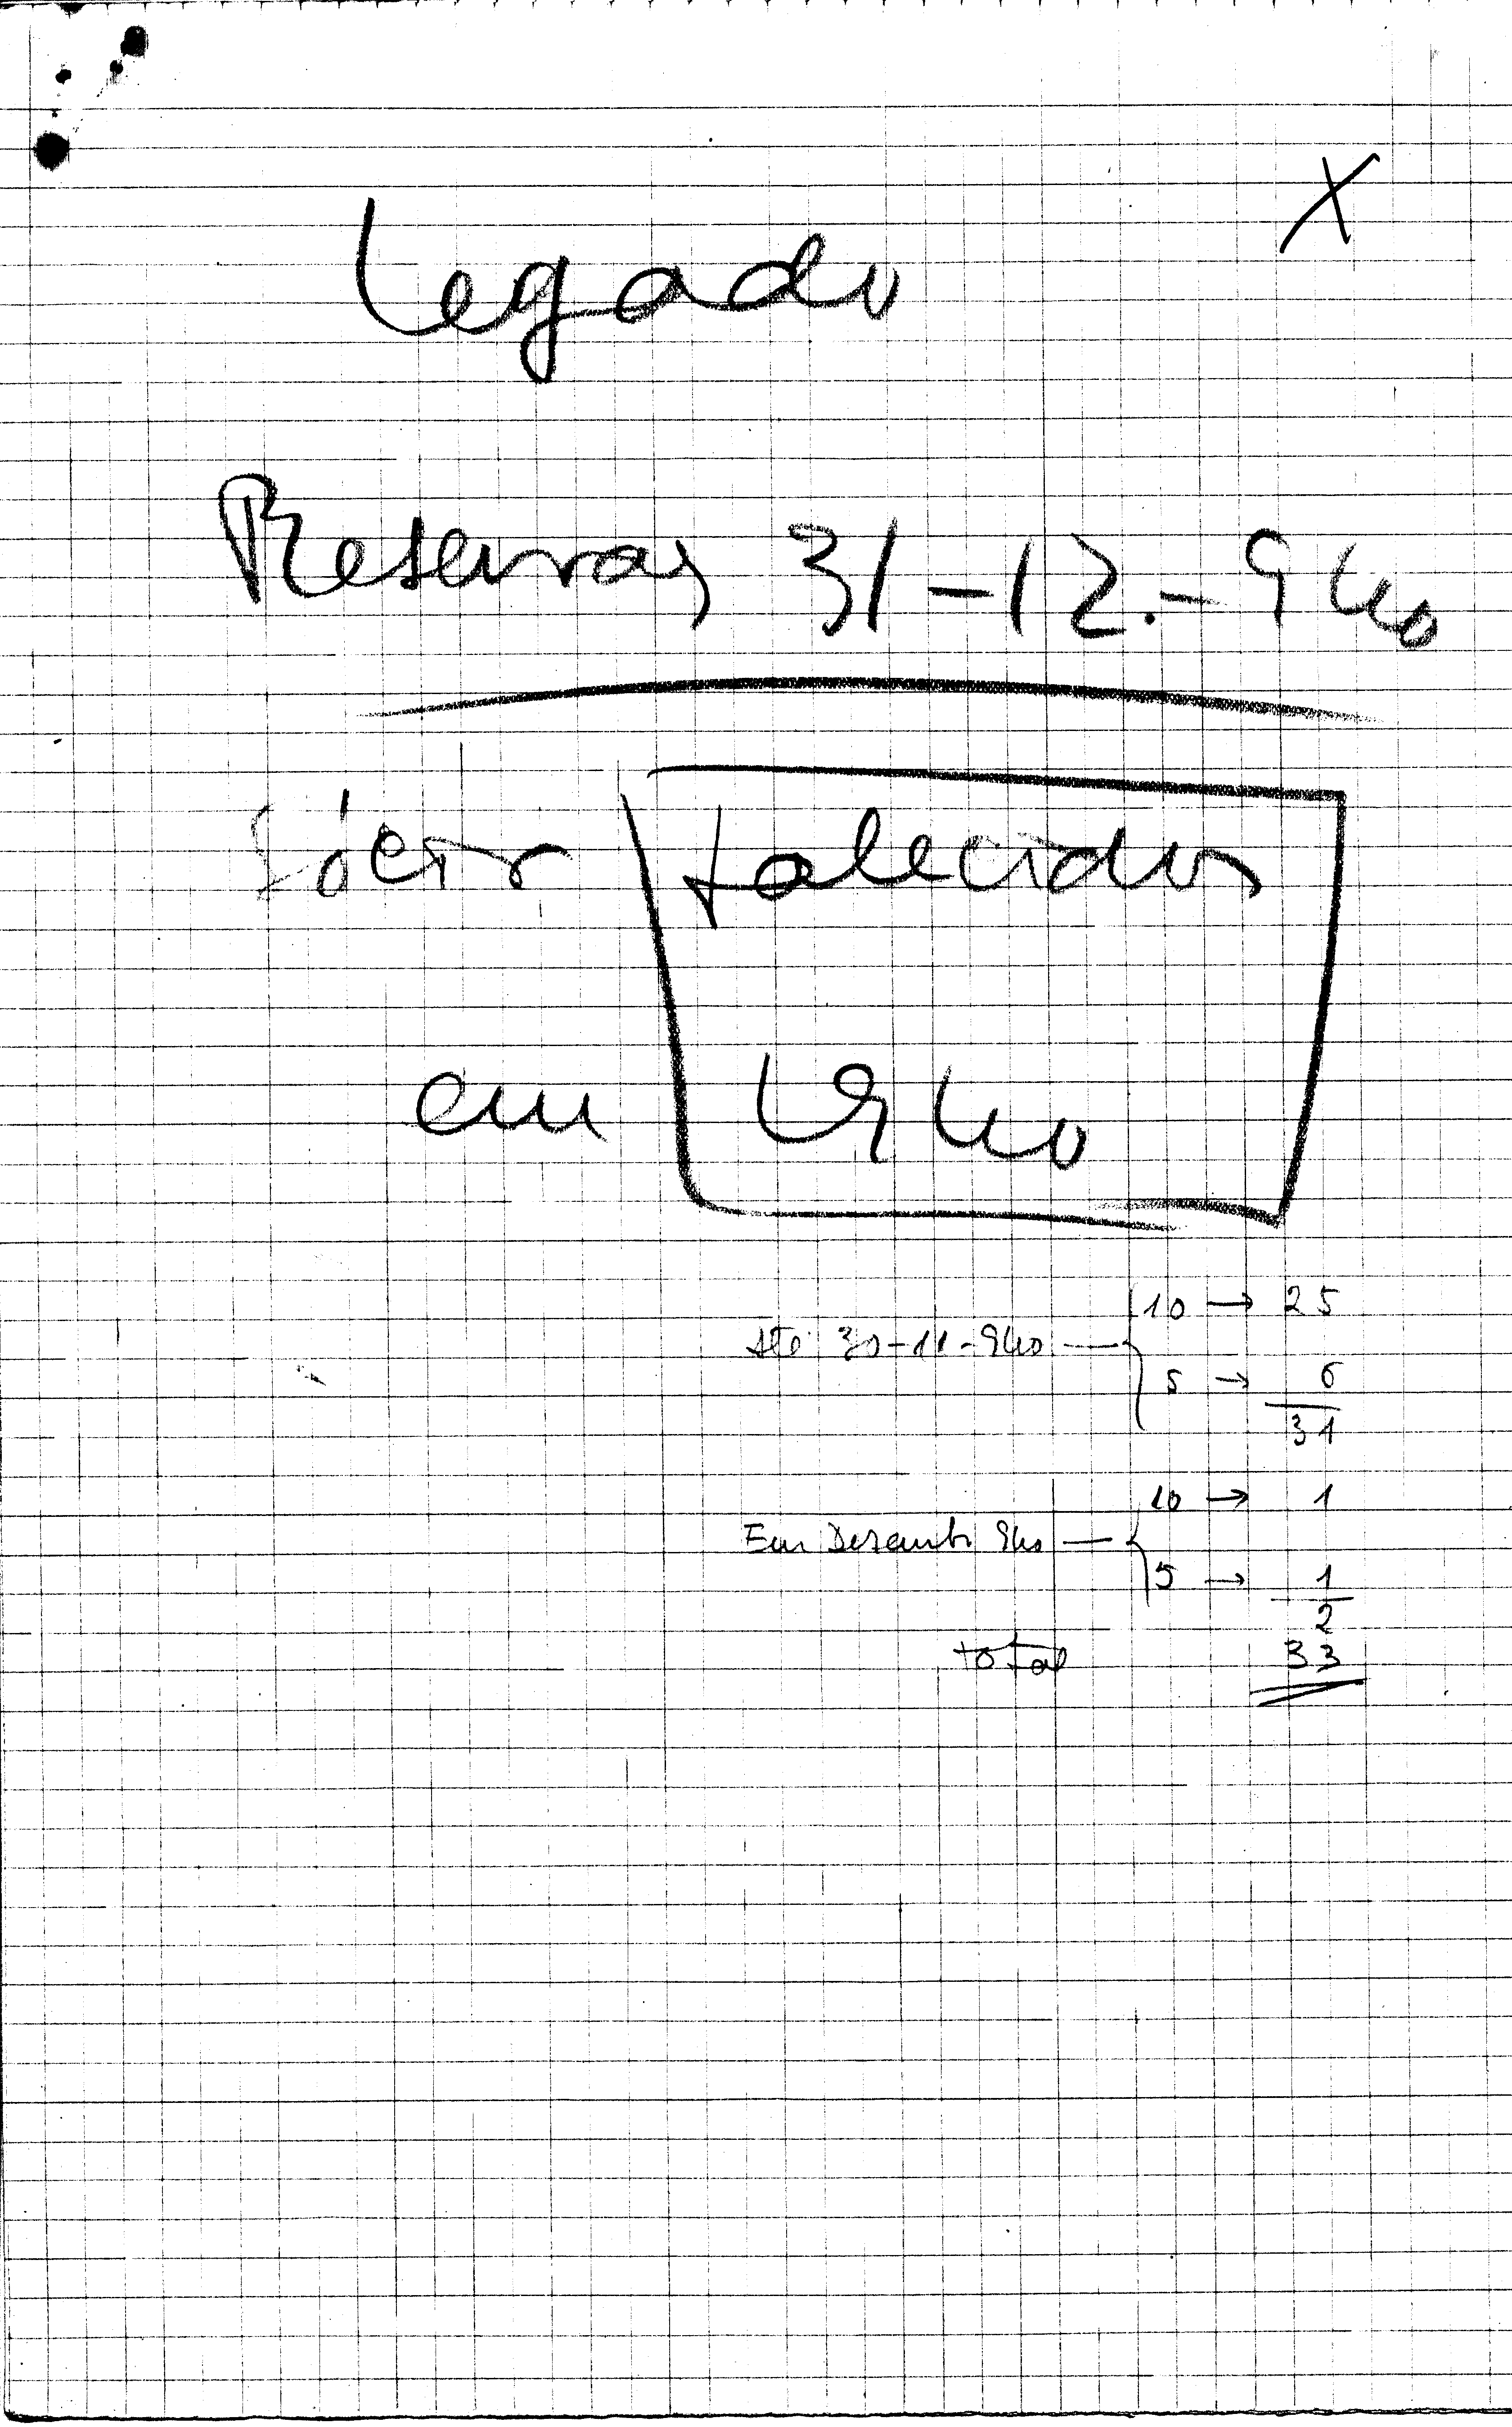 X
Legado
Reservas 31-12.-940
Sócios falecidos
em 1940
10 → 25
Até 30-11-940 —
5 → 6
31
10 → 1
Em Dezembro 940 —
5 → 1
2
total 33